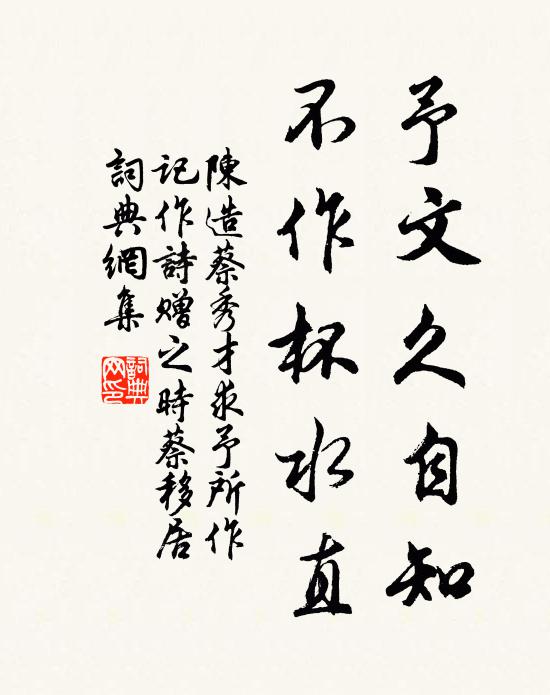 予文久自知
不作杯水直
陳造蔡秀才求予所作
記作詩贈之時蔡移居
詞典網集
詞典网印